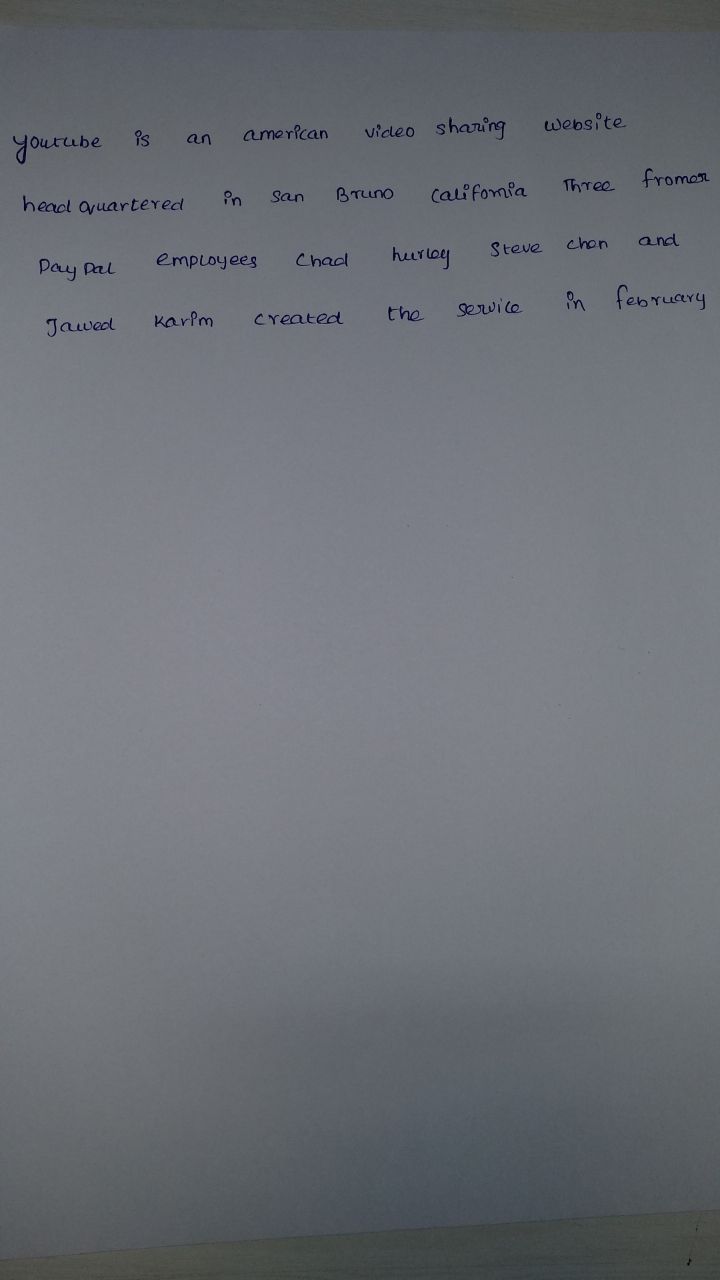 youtube is an american video sharing website
head quartered in san Bruno california Three fromer
PayPal employees Chad hurley Steve chen and
Jawed Karim created the service in february